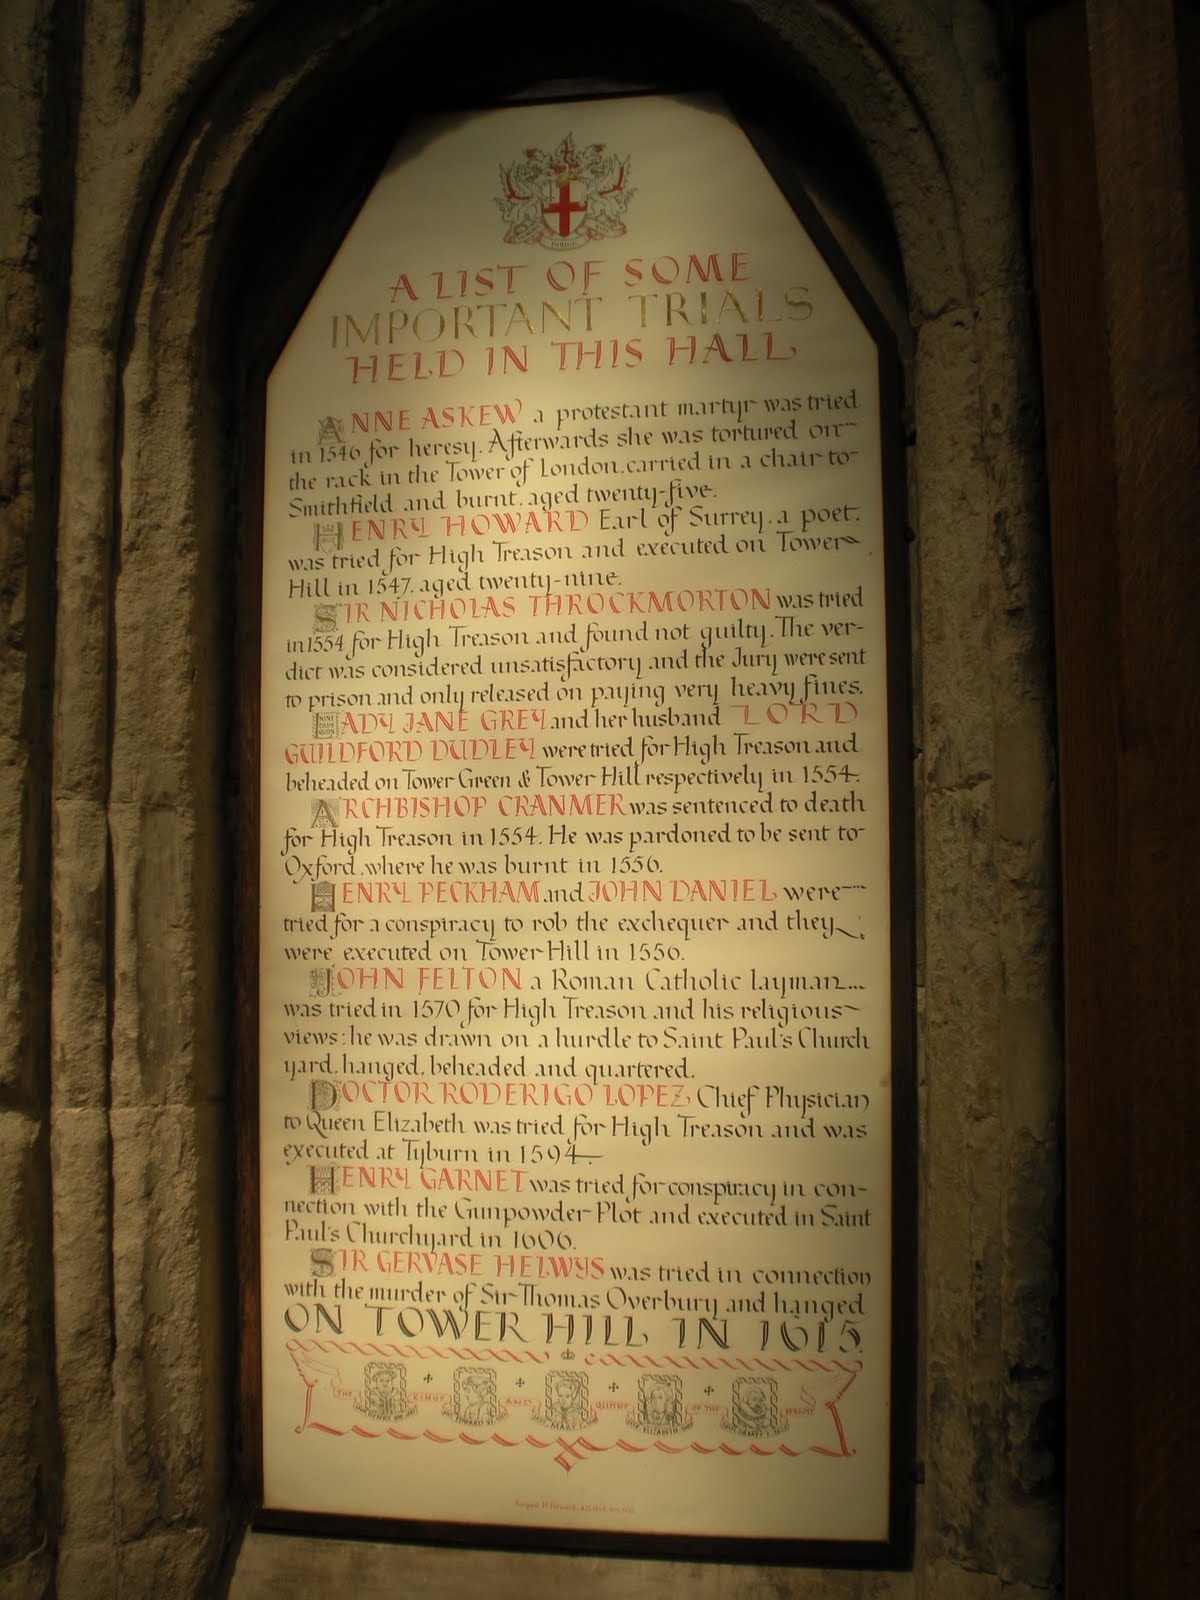 A LIST OF SOME
IMPORTANT TRIALS
HELD IN THIS HALL
ANNE ASKEW a protestant martyr was tried
in 1546 for heresy. Afterwards she was tortured on
the rack in the Tower of London. carried in a chair to
Smithfield and burnt. aged twenty-five.
HENRY HOWARD Earl of Surrey. a poet.
was tried for High Treason and executed on Tower
Hill in 1547. aged twenty-nine.
SIR NICHOLAS THROCKMORTON was tried
in 1554 for High Treason and found not guilty. The ver-
dict was considered unsatisfactory and the Jury were sent
to prison and only released on paying very heavy fines.
LADY JANE GREY and her husband LORD
GUILDFORD DUDLEY were tried for High Treason and
beheaded on Tower Green & Tower Hill respectively in 1554.
ARCHBISHOP CRANMER was sentenced to death
for High Treason in 1554. He was pardoned to be sent to
Oxford. where he was burnt in 1556.
HENRY PECKHAM and JOHN DANIEL were
tried for a conspiracy to rob the exchequer and they
were executed on Tower Hill in 1556.
JOHN FELTON a Roman Catholic layman...
was tried in 1570 for High Treason and his religious
views: he was drawn on a hurdle to Saint Paul's Church
yard. hanged. beheaded and quartered.
DOCTOR RODERIGO LOPEZ Chief Physician
to Queen Elizabeth was tried for High Treason and was
executed at Tyburn in 1594
HENRY GARNET was tried for conspiracy in con-
nection with the Gunpowder Plot and executed in Saint
Paul's Churchyard in 1606.
SIR GERVASE HELWYS was tried in connection
with the murder of Sir Thomas Overbury and hanged
ON TOWER HILL IN 1615.
THE KINGS AND QUEENS OF THE PERIOD